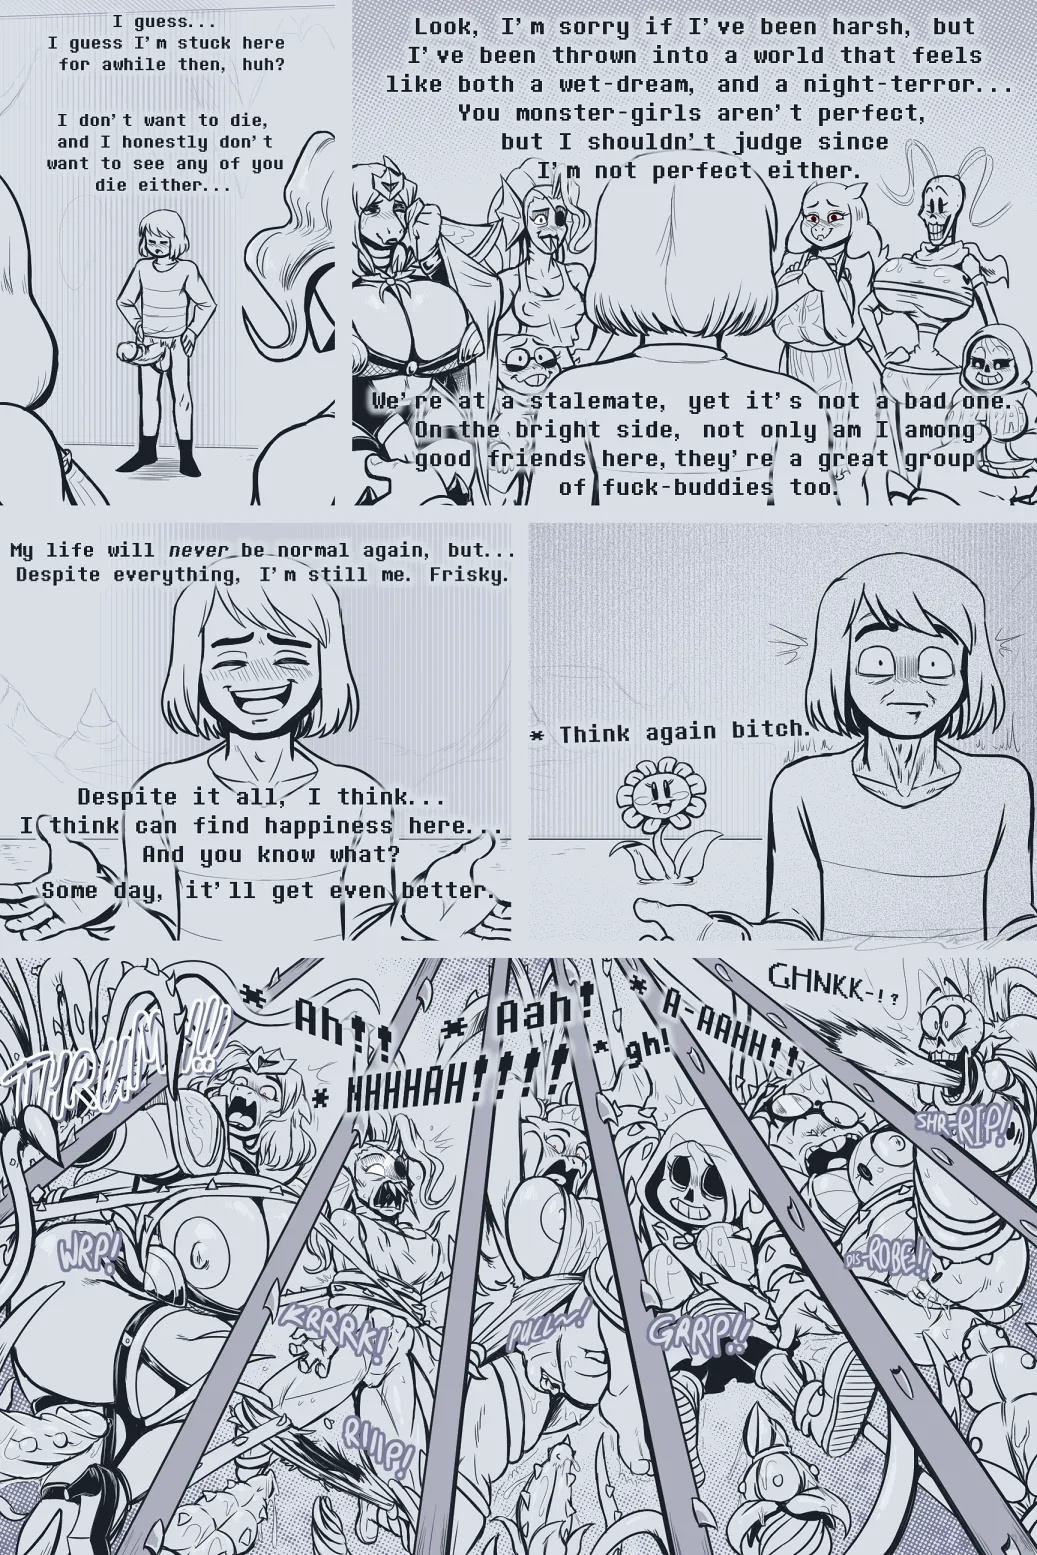 I guess...
I guess I'm stuck here
for awhile then, huh?
I don't want to die,
and I honestly don't
want to see any of you
die either...
Look, I'm sorry if I've been harsh, but
I've been thrown into a world that feels
like both a wet-dream, and a night-terror...
You monster-girls aren't perfect,
but I shouldn't judge since
I'm not perfect either.
We're at a stalemate, yet it's not a bad one.
On the bright side, not only am I among
good friends here, they're a great group
of fuck-buddies too.
My life will never be normal again, but...
Despite everything, I'm still me. Frisky.
Despite it all, I think...
I think can find happiness here...
And you know what?
Some day, it'll get even better.
* Think again bitch.
THRUM!!!
* Ah!!
* Aah!
* A-AAHH!!
GHNKK-!?
* HHHHAH!!!!
* gh!
SHR-RIP!
WRP!
DIS-ROBE!!
KRRRK!
PULL~!
GRRP!!
RIIIP!